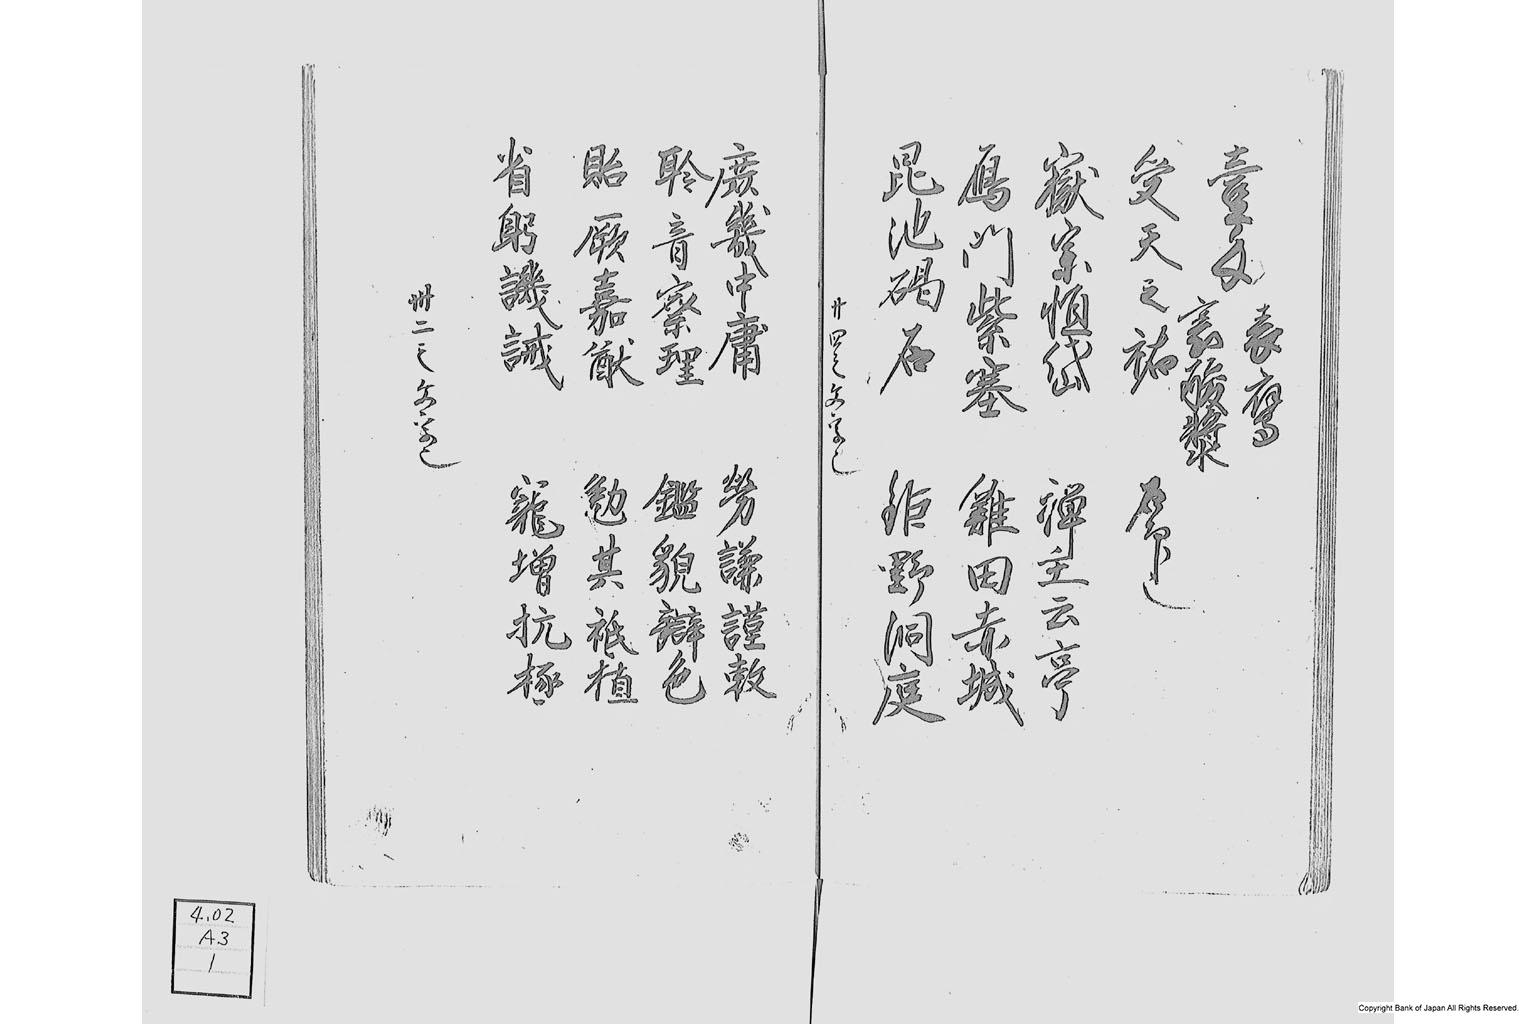 臺文
表鷹
裏酸漿
受天之祐
嶽宗恒岱 禪主云亭
鴈門紫塞 雞田赤城
昆池碣石 鉅野洞庭
廿四之文字也
庶幾中庸 勞謙謹敕
聆音察理 鑑貌辯色
貽厥嘉猷 勉其祗植
省躬譏誡 寵增抗極
卅二之文字也
4.02
A3
1
Copyright Bank of Japan All Rights Reserved.